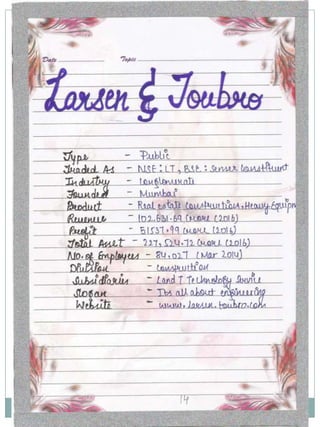 Date Topic
Larsen & Toubro
Type - Public
Traded As - NSE : LT, BSE : Sensex Constituent
Industry - Conglomerate
Founded - Mumbai
Product - Real estate construction, Heavy Equipm
Revenue - 102,631.69 crore (2016)
Profit - 51537.99 crore (2016)
Total Asset - 227,524.72 crore (2016)
No. of Employees - 84,027 (Mar 2014)
Division - construction
Subsidiaries - Land T Technology Service
Slogan - Its all about engineering
Website - www.larsen.toubro.com
14